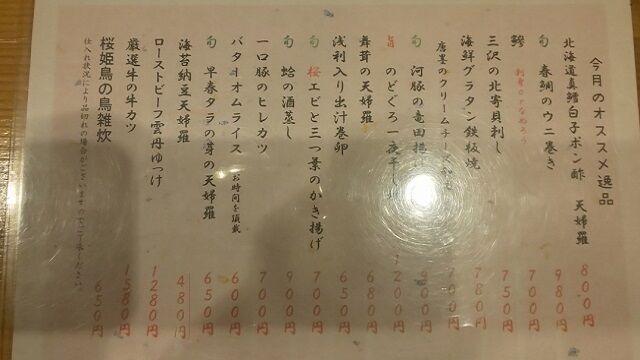 今月のオススメ逸品
北海道真鱈白子ポン酢 天婦羅 800円
旬 春鯛のウニ巻き 980円
鰺 刺身 or なめろう 700円
三沢の北寄貝刺し 750円
海鮮グラタン鉄板焼 780円
唐墨のクリームチーズ 700円
旬 河豚の竜田揚げ 900円
旨 のどぐろ一夜干し 1200円
舞茸の天婦羅 680円
浅利入り出汁巻卵 650円
旬 桜エビと三つ葉のかき揚げ 700円
旬 蛤の酒蒸し 900円
一口豚のヒレカツ 700円
バタ オムライス お時間を頂戴 600円
旬 早春タラの芽の天婦羅 650円
海苔納豆天婦羅 480円
ローストビーフ雲丹ゆっけ 1280円
厳選牛の牛カツ 1580円
桜姫鳥の鳥雑炊 650円
仕入れ状況により品切れの場合がございますのでご了承ください。